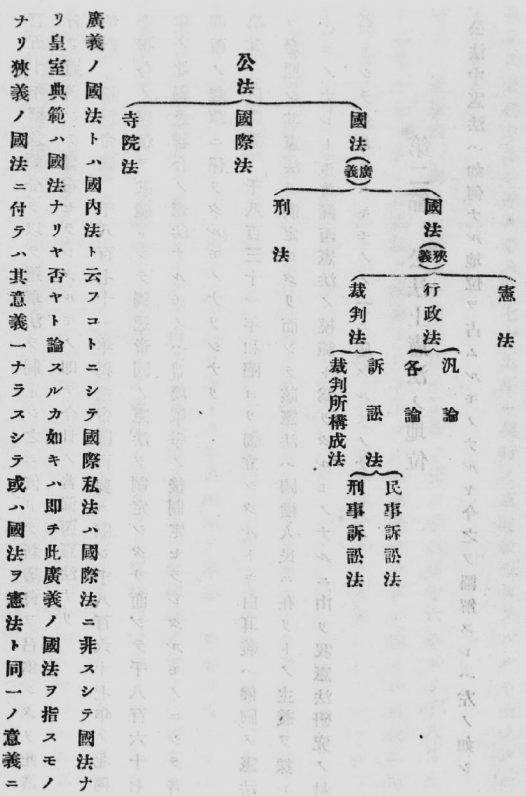 公法
國法(廣義)
國法(狹義)
憲法
行政法
汎論
各論
裁判法
訴訟法
民事訴訟法
刑事訴訟法
裁判所構成法
刑法
國際法
寺院法
廣義ノ國法トハ國内法ト云フコトニシテ國際私法ハ國際法ニ非スシテ國法ナ
リ皇室典範ハ國法ナリヤ否ヤト論スルカ如キハ即チ此廣義ノ國法ヲ指スモノ
ナリ狹義ノ國法ニ付テハ其意義一ナラスシテ或ハ國法ヲ憲法ト同一ノ意義ニ